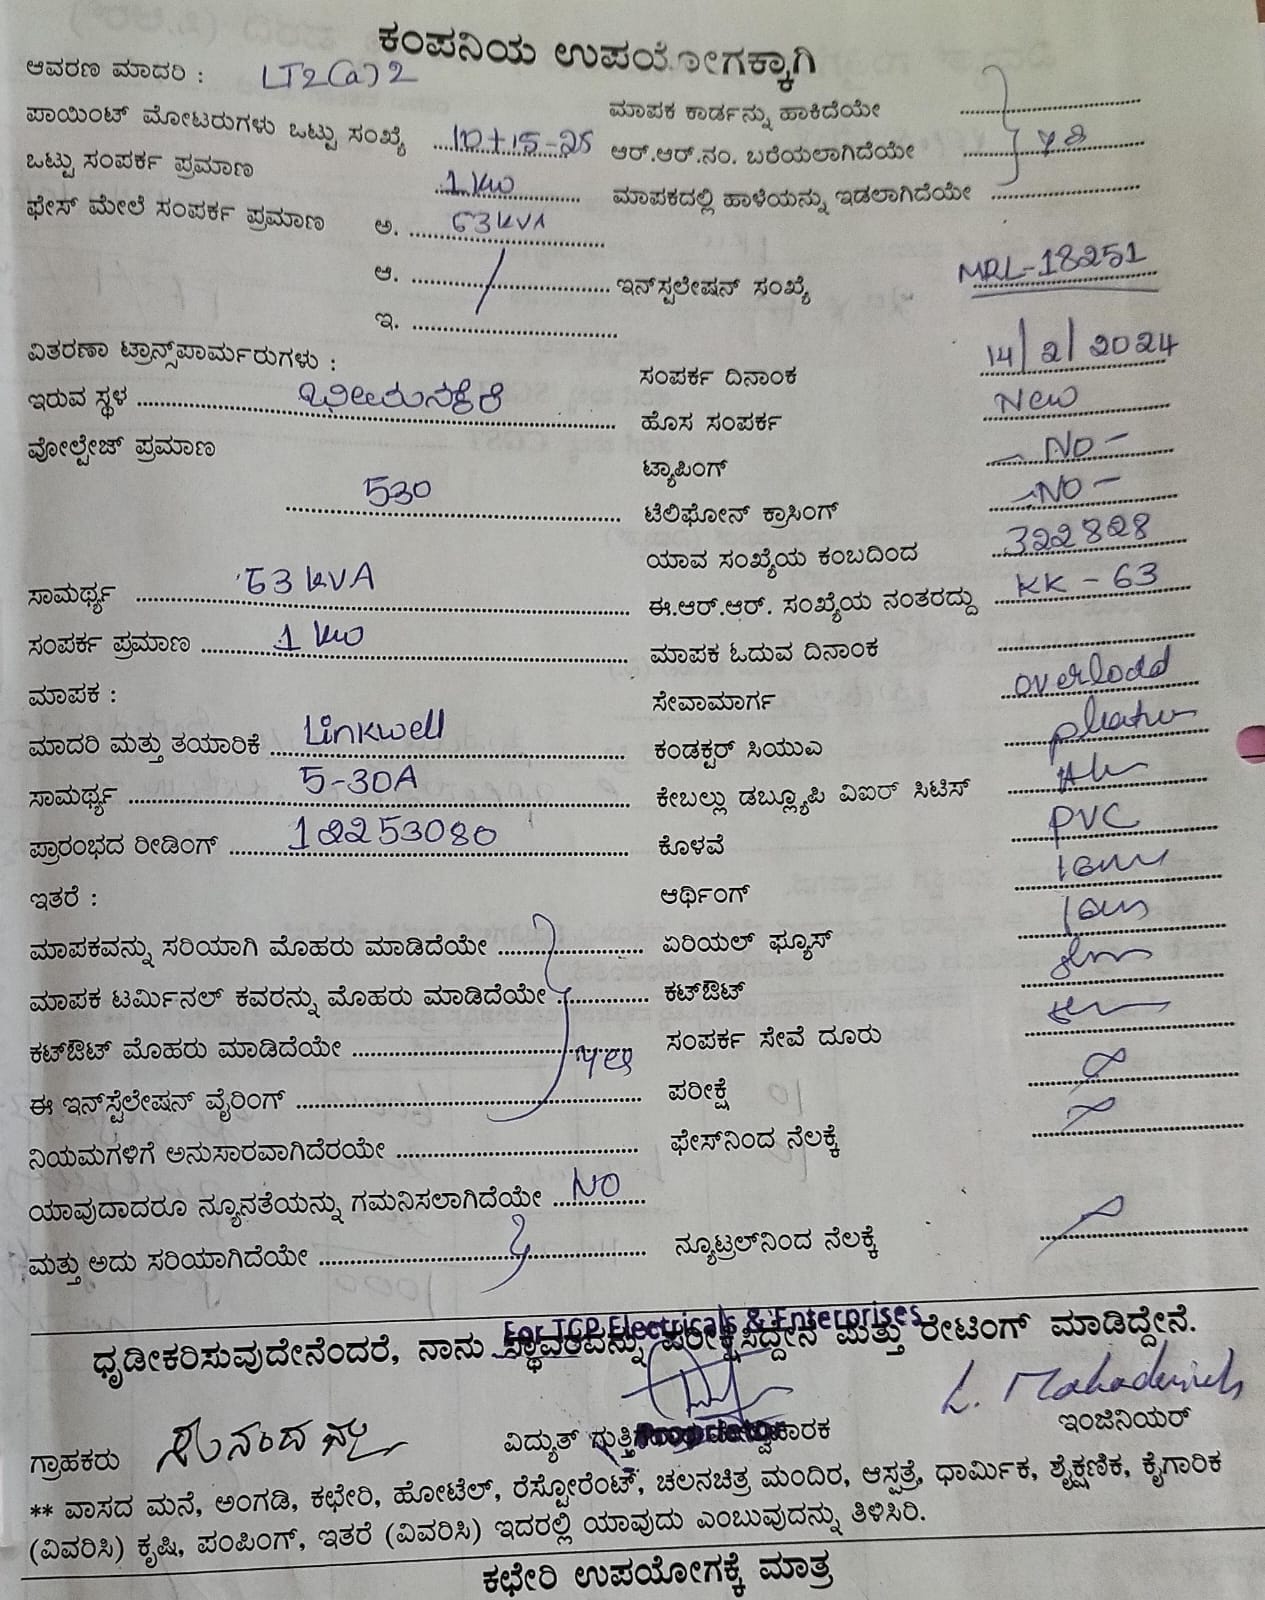 ಕಂಪನಿಯ ಉಪಯೋಗಕ್ಕಾಗಿ
ಆವರಣ ಮಾದರಿ : LT2(a)2
ಪಾಯಿಂಟ್ ಮೋಟರುಗಳು ಒಟ್ಟು ಸಂಖ್ಯೆ 10+15-25 ಮಾಪಕ ಕಾರ್ಡನ್ನು ಹಾಕಿದೆಯೇ
ಒಟ್ಟು ಸಂಪರ್ಕ ಪ್ರಮಾಣ 1 KW ಆರ್.ಆರ್.ನಂ. ಬರೆಯಲಾಗಿದೆಯೇ
ಫೇಸ್ ಮೇಲೆ ಸಂಪರ್ಕ ಪ್ರಮಾಣ ಅ. 63 KVA ಮಾಪಕದಲ್ಲಿ ಹಾಳೆಯನ್ನು ಇಡಲಾಗಿದೆಯೇ
ಆ. ಇನ್‌ಸ್ಟಲೇಷನ್ ಸಂಖ್ಯೆ MRL-18251
ಇ.
ವಿತರಣಾ ಟ್ರಾನ್ಸ್‌ಪಾರ್ಮರುಗಳು : ಸಂಪರ್ಕ ದಿನಾಂಕ 14/2/2024
ಇರುವ ಸ್ಥಳ ಭೀಮನಕೆರೆ ಹೊಸ ಸಂಪರ್ಕ New
ವೋಲ್ಟೇಜ್ ಪ್ರಮಾಣ ಟ್ಯಾಪಿಂಗ್ - NO -
530 ಟೆಲಿಫೋನ್ ಕ್ರಾಸಿಂಗ್ - NO -
ಯಾವ ಸಂಖ್ಯೆಯ ಕಂಬದಿಂದ 322828
ಸಾಮರ್ಥ್ಯ 63 KVA ಈ.ಆರ್.ಆರ್. ಸಂಖ್ಯೆಯ ನಂತರದ್ದು KK - 63
ಸಂಪರ್ಕ ಪ್ರಮಾಣ 1 KW ಮಾಪಕ ಓದುವ ದಿನಾಂಕ
ಮಾಪಕ : ಸೇವಾಮಾರ್ಗ overload
ಮಾದರಿ ಮತ್ತು ತಯಾರಿಕೆ Linkwell ಕಂಡಕ್ಟರ್ ಸಿಯುಎ
ಸಾಮರ್ಥ್ಯ 5-30A ಕೇಬಲ್ಲು ಡಬ್ಲ್ಯೂಪಿ ವಿಐರ್ ಸಿಟಿಸ್
ಪ್ರಾರಂಭದ ರೀಡಿಂಗ್ 12253080 ಕೊಳವೆ PVC
ಇತರೆ : ಆರ್ಥಿಂಗ್
ಮಾಪಕವನ್ನು ಸರಿಯಾಗಿ ಮೊಹರು ಮಾಡಿದೆಯೇ ಏರಿಯಲ್ ಫ್ಯೂಸ್
ಮಾಪಕ ಟರ್ಮಿನಲ್ ಕವರನ್ನು ಮೊಹರು ಮಾಡಿದೆಯೇ ಕಟ್‌ಔಟ್
ಕಟ್‌ಔಟ್ ಮೊಹರು ಮಾಡಿದೆಯೇ yes ಸಂಪರ್ಕ ಸೇವೆ ದೂರು
ಈ ಇನ್‌ಸ್ಟೆಲೇಷನ್ ವೈರಿಂಗ್ ಪರೀಕ್ಷೆ
ನಿಯಮಗಳಿಗೆ ಅನುಸಾರವಾಗಿದೆರಯೇ ಫೇಸ್‌ನಿಂದ ನೆಲಕ್ಕೆ
ಯಾವುದಾದರೂ ನ್ಯೂನತೆಯನ್ನು ಗಮನಿಸಲಾಗಿದೆಯೇ NO
ಮತ್ತು ಅದು ಸರಿಯಾಗಿದೆಯೇ ನ್ಯೂಟ್ರಲ್‌ನಿಂದ ನೆಲಕ್ಕೆ
For TGP Electricals & Enterprises
ಧೃಡೀಕರಿಸುವುದೇನೆಂದರೆ, ನಾನು ಸ್ಥಾವರವನ್ನು ಪರೀಕ್ಷಿಸಿದ್ದೇನೆ ಮತ್ತು ರೇಟಿಂಗ್ ಮಾಡಿದ್ದೇನೆ.
ಗ್ರಾಹಕರು ವಿದ್ಯುತ್ ಗುತ್ತಿ Proprietor ಇಂಜಿನಿಯರ್
** ವಾಸದ ಮನೆ, ಅಂಗಡಿ, ಕಛೇರಿ, ಹೋಟೆಲ್, ರೆಸ್ಟೋರೆಂಟ್, ಚಲನಚಿತ್ರ ಮಂದಿರ, ಆಸ್ಪತ್ರೆ, ಧಾರ್ಮಿಕ, ಶೈಕ್ಷಣಿಕ, ಕೈಗಾರಿಕ
(ವಿವರಿಸಿ) ಕೃಷಿ, ಪಂಪಿಂಗ್, ಇತರೆ (ವಿವರಿಸಿ) ಇದರಲ್ಲಿ ಯಾವುದು ಎಂಬುವುದನ್ನು ತಿಳಿಸಿರಿ.
ಕಛೇರಿ ಉಪಯೋಗಕ್ಕೆ ಮಾತ್ರ